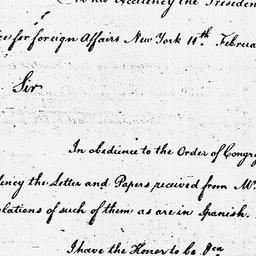 his Excellency the Presiden
ce for foreign Affairs New York 11th. Februa
Sir
In obedience to the Order of Congr
lency the Letter and Papers received from Mr
slations of such of them as are in Spanish.
I have the Honor to be &ca